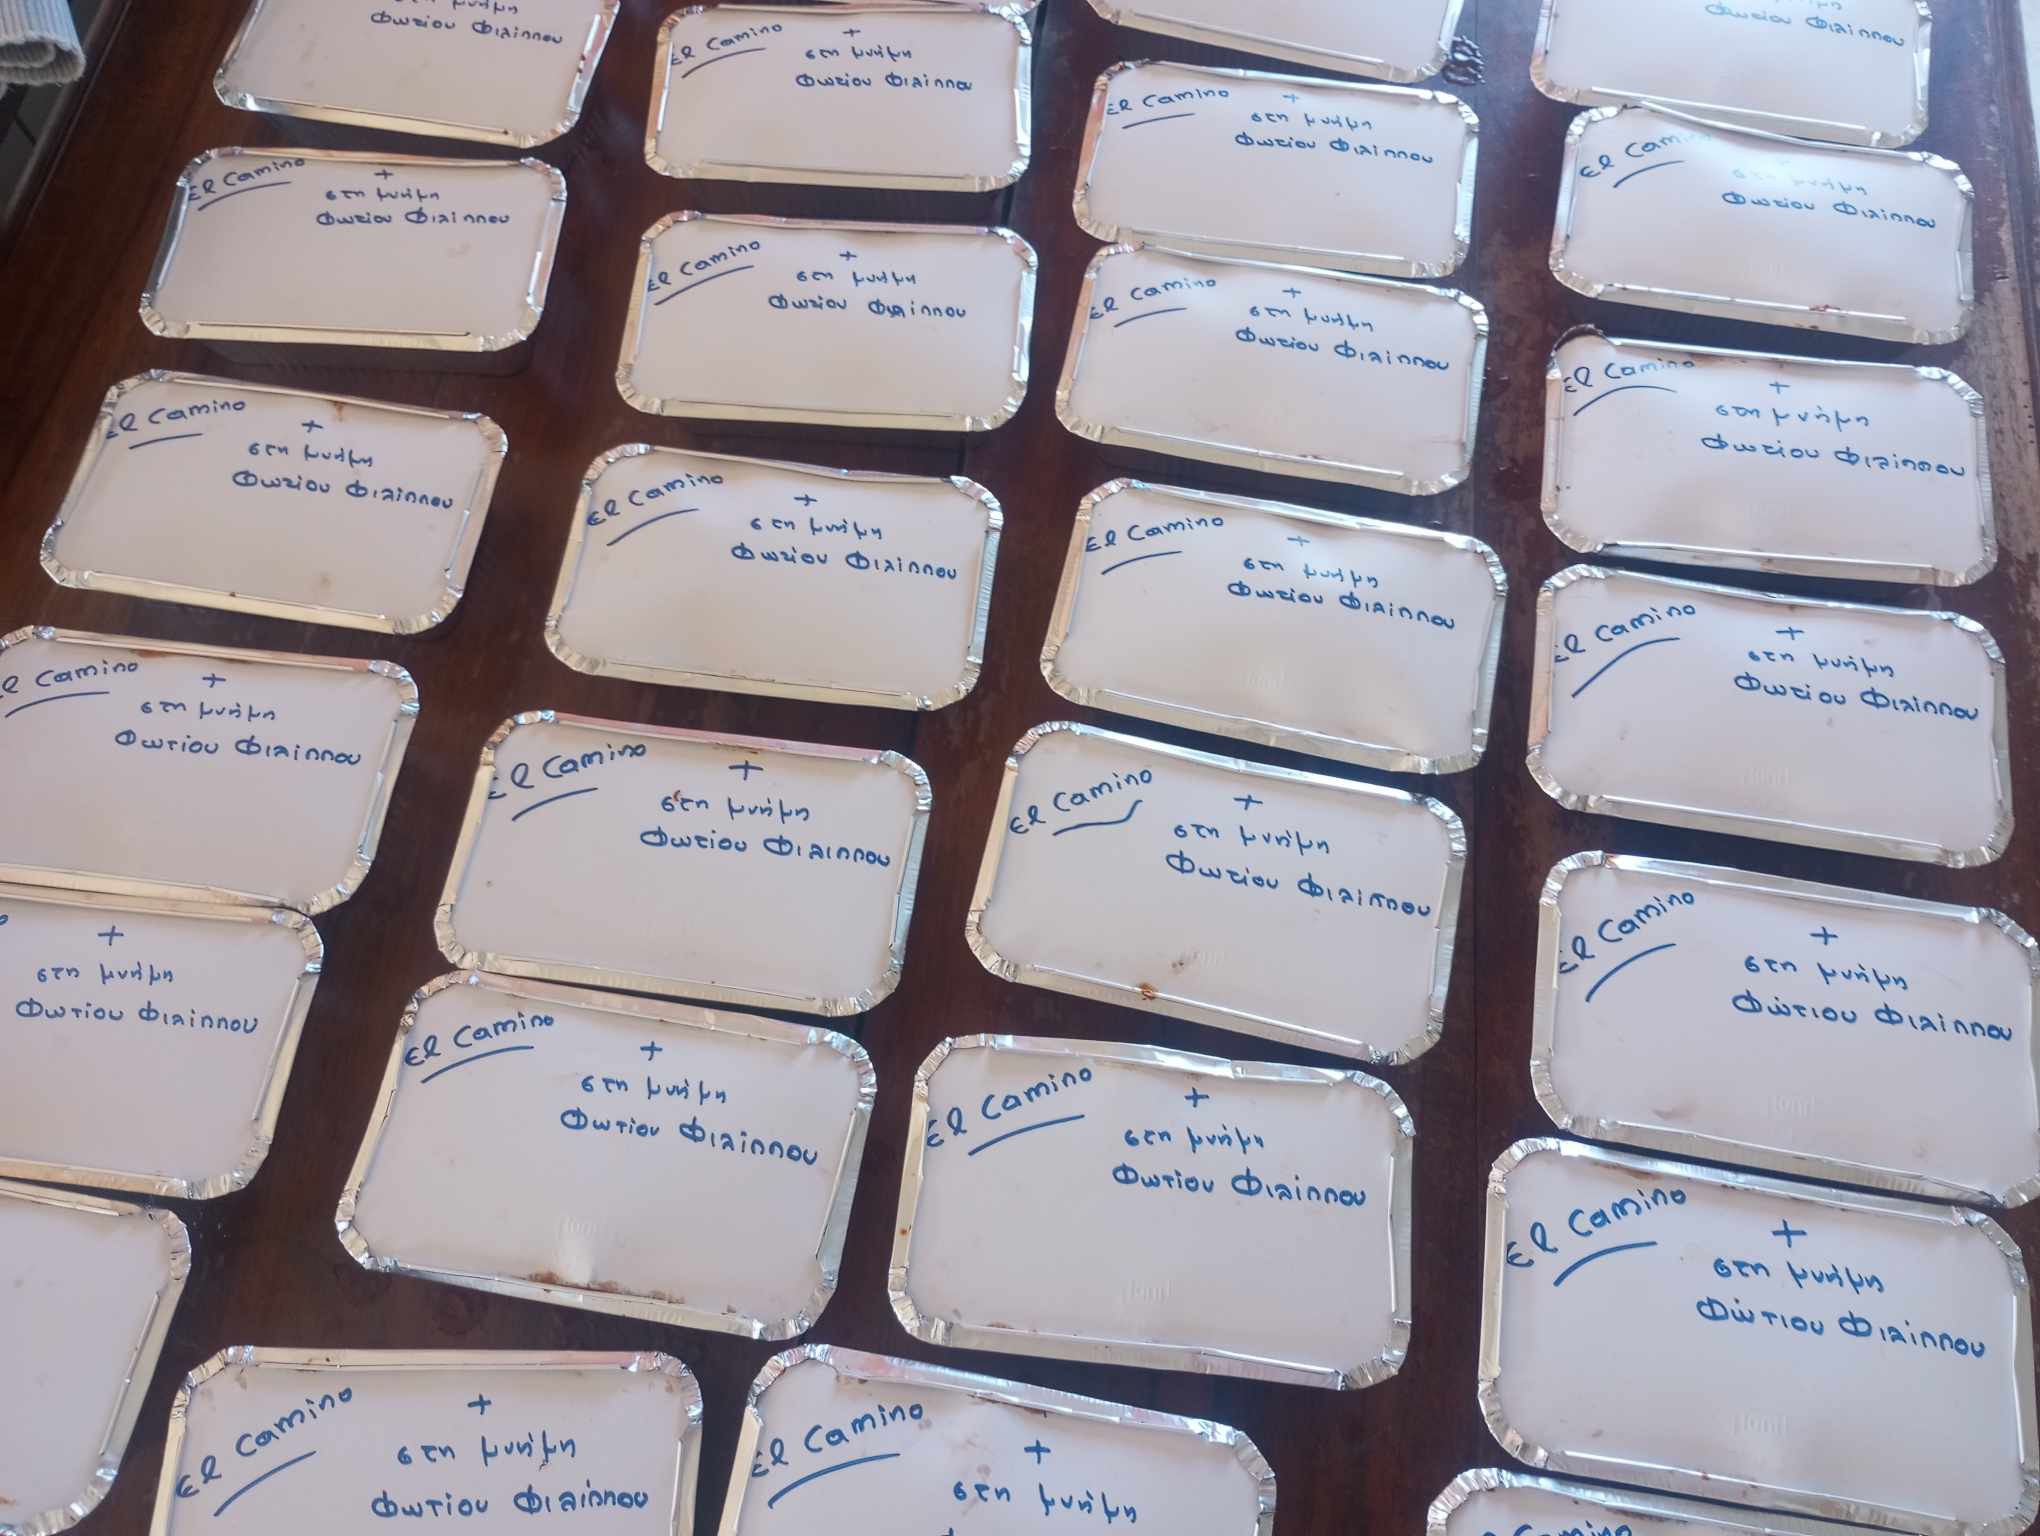 μνήμη
Φωτίου Φιλίππου
El Camino
+
στη μνήμη
Φωτίου Φιλίππου
Φωτίου Φιλίππου
El Camino
+
στη μνήμη
Φωτίου Φιλίππου
El Camino
+
στη μνήμη
Φωτίου Φιλίππου
El Camino
+
στη μνήμη
Φωτίου Φιλίππου
El Camino
+
στη μνήμη
Φωτίου Φιλίππου
El Camino
+
στη μνήμη
Φωτίου Φιλίππου
El Camino
+
στη μνήμη
Φωτίου Φιλίππου
El Camino
+
στη μνήμη
Φωτίου Φιλίππου
El Camino
+
στη μνήμη
Φωτίου Φιλίππου
El Camino
+
στη μνήμη
Φωτίου Φιλίππου
El Camino
+
στη μνήμη
Φωτίου Φιλίππου
El Camino
+
στη μνήμη
Φωτίου Φιλίππου
El Camino
+
στη μνήμη
Φωτίου Φιλίππου
El Camino
+
στη μνήμη
Φωτίου Φιλίππου
El Camino
+
στη μνήμη
Φωτίου Φιλίππου
+
στη μνήμη
Φωτίου Φιλίππου
El Camino
+
στη μνήμη
Φωτίου Φιλίππου
El Camino
+
στη μνήμη
Φωτίου Φιλίππου
El Camino
+
στη μνήμη
Φώτιου Φιλίππου
El Camino
+
στη μνήμη
Φώτιου Φιλίππου
El Camino
+
στη μνήμη
Φωτίου Φιλίππου
El Camino
+
στη μνήμη
El Camino